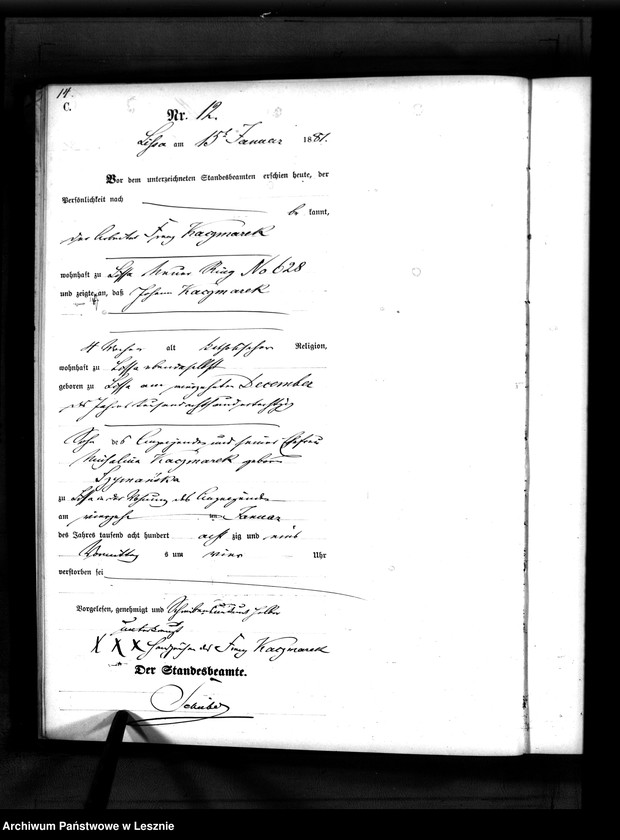 14.
C.
Nr. 12.
Lissa am 15t Januar 1881.
Vor dem unterzeichneten Standesbeamten erschien heute, der
Persönlichkeit nach
be kannt,
der Arbeiter Franz Kaczmarek
wohnhaft zu Lissa Neuer Ring No 628
und zeigte an, daß Johann Kaczmarek
4 Wochen alt katholischer Religion,
wohnhaft zu Lissa ebendaselbst
geboren zu Lissa am vierzehnten December
des Jahres tausendachthundertachtzig
Sohn des Anzeigenden und seiner Ehefrau
Michalina Kaczmarek geborene
Szymańska
zu Lissa in der Wohnung des Anzeigenden
am vierzehn ten Januar
des Jahres tausend acht hundert acht zig und eins
Vormittag s um vier Uhr
verstorben sei
Vorgelesen, genehmigt und Schreibensunkunde halber
unterkreuzt
X X X Handzeichen des Franz Kaczmarek
Der Standesbeamte.
Archiwum Państwowe w Lesznie